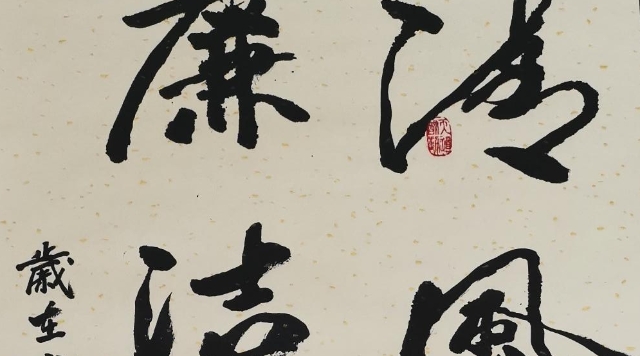 清風
廉洁
歲在